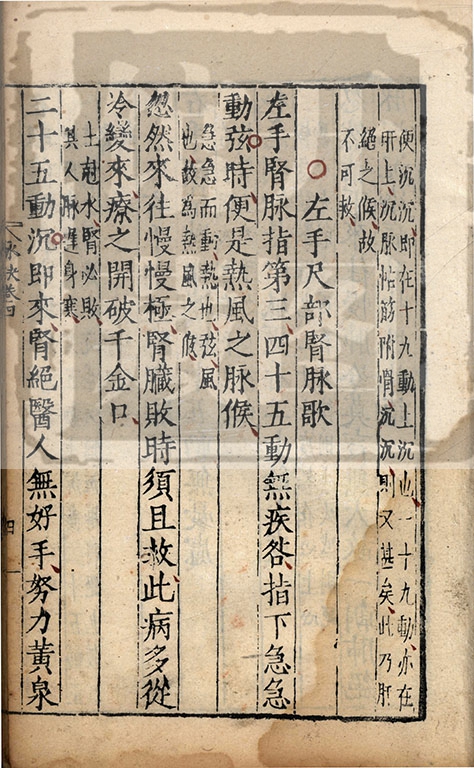 便沉沉即在十九動上沉也一十九動亦在
肝上沉脉帖筋附骨沉沉則又甚矣此乃肝
絕之候故
不可救
○左手尺部腎脉歌
左手腎脉指第三四十五動無疾咎指下急急
動弦時便是熱風之脉候
急急而動熱也弦風
也故為熱風之候
忽然來往慢慢極腎臟敗時須且救此病多從
冷變來療之開破千金口
土尅水腎必敗
其人脉遲身寒
二十五動沉即來腎絕醫人無好手努力黃泉
卷四
四一